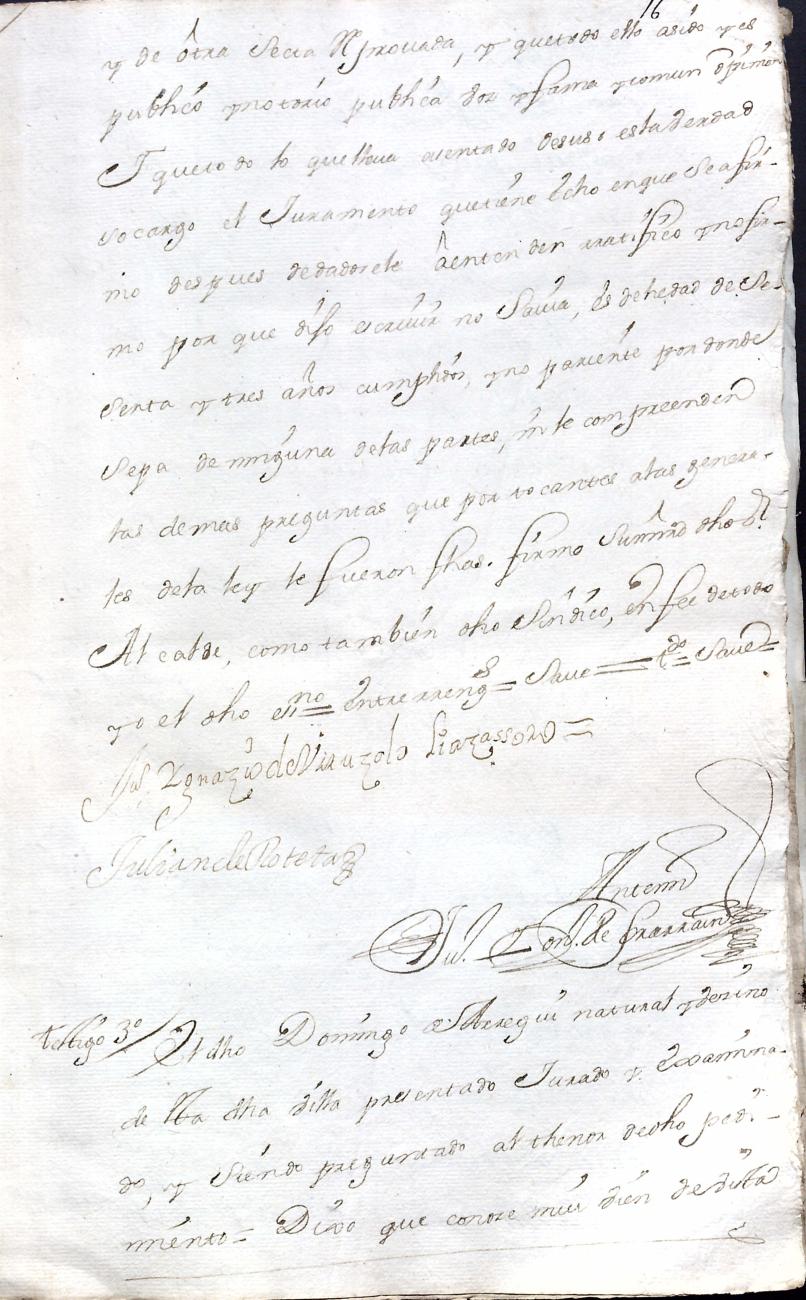 16
y de otra secta rreprovada, y que todo ello a sido y es
publico y notorio publica voz y fama y comun opinion
Y que todo lo que lleva asentado desuso es la verdad
so cargo el Juramento que tiene echo en que se afir-
mo despues de dadorele âentender rratifico y no fir-
mo por que dijo escrivir no Savia, es de hedad de se-
senta y tres años cumplidos, y no pariente por donde
sepa de ninguna de las partes, ni le compreenden
las demas preguntas que por tocantes a las genera-
les de la ley le fueron fhas. firmo Sumrd dho Sr
Alcalde, como tambien dho Sindico, en fee de todo
yo el dho essno entrerrengs = Save = tdo = Save =
Ju. Ygnazio de
Julian de Roteta
Antemi
Ju.
testigo 3º / El dho Domingo de Arregui natural y vezino
de esta dha villa presentado Jurado y examina-
do, y siendo preguntado al thenor de dho pedi-
miento = Dixo que conoze mui bien de vista